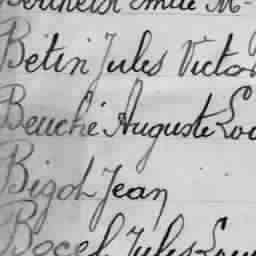 Bertheist Emile M-
Bétin Jules Victo
Beuché Auguste Lou
Bigot Jean
Bocel Jules Lou